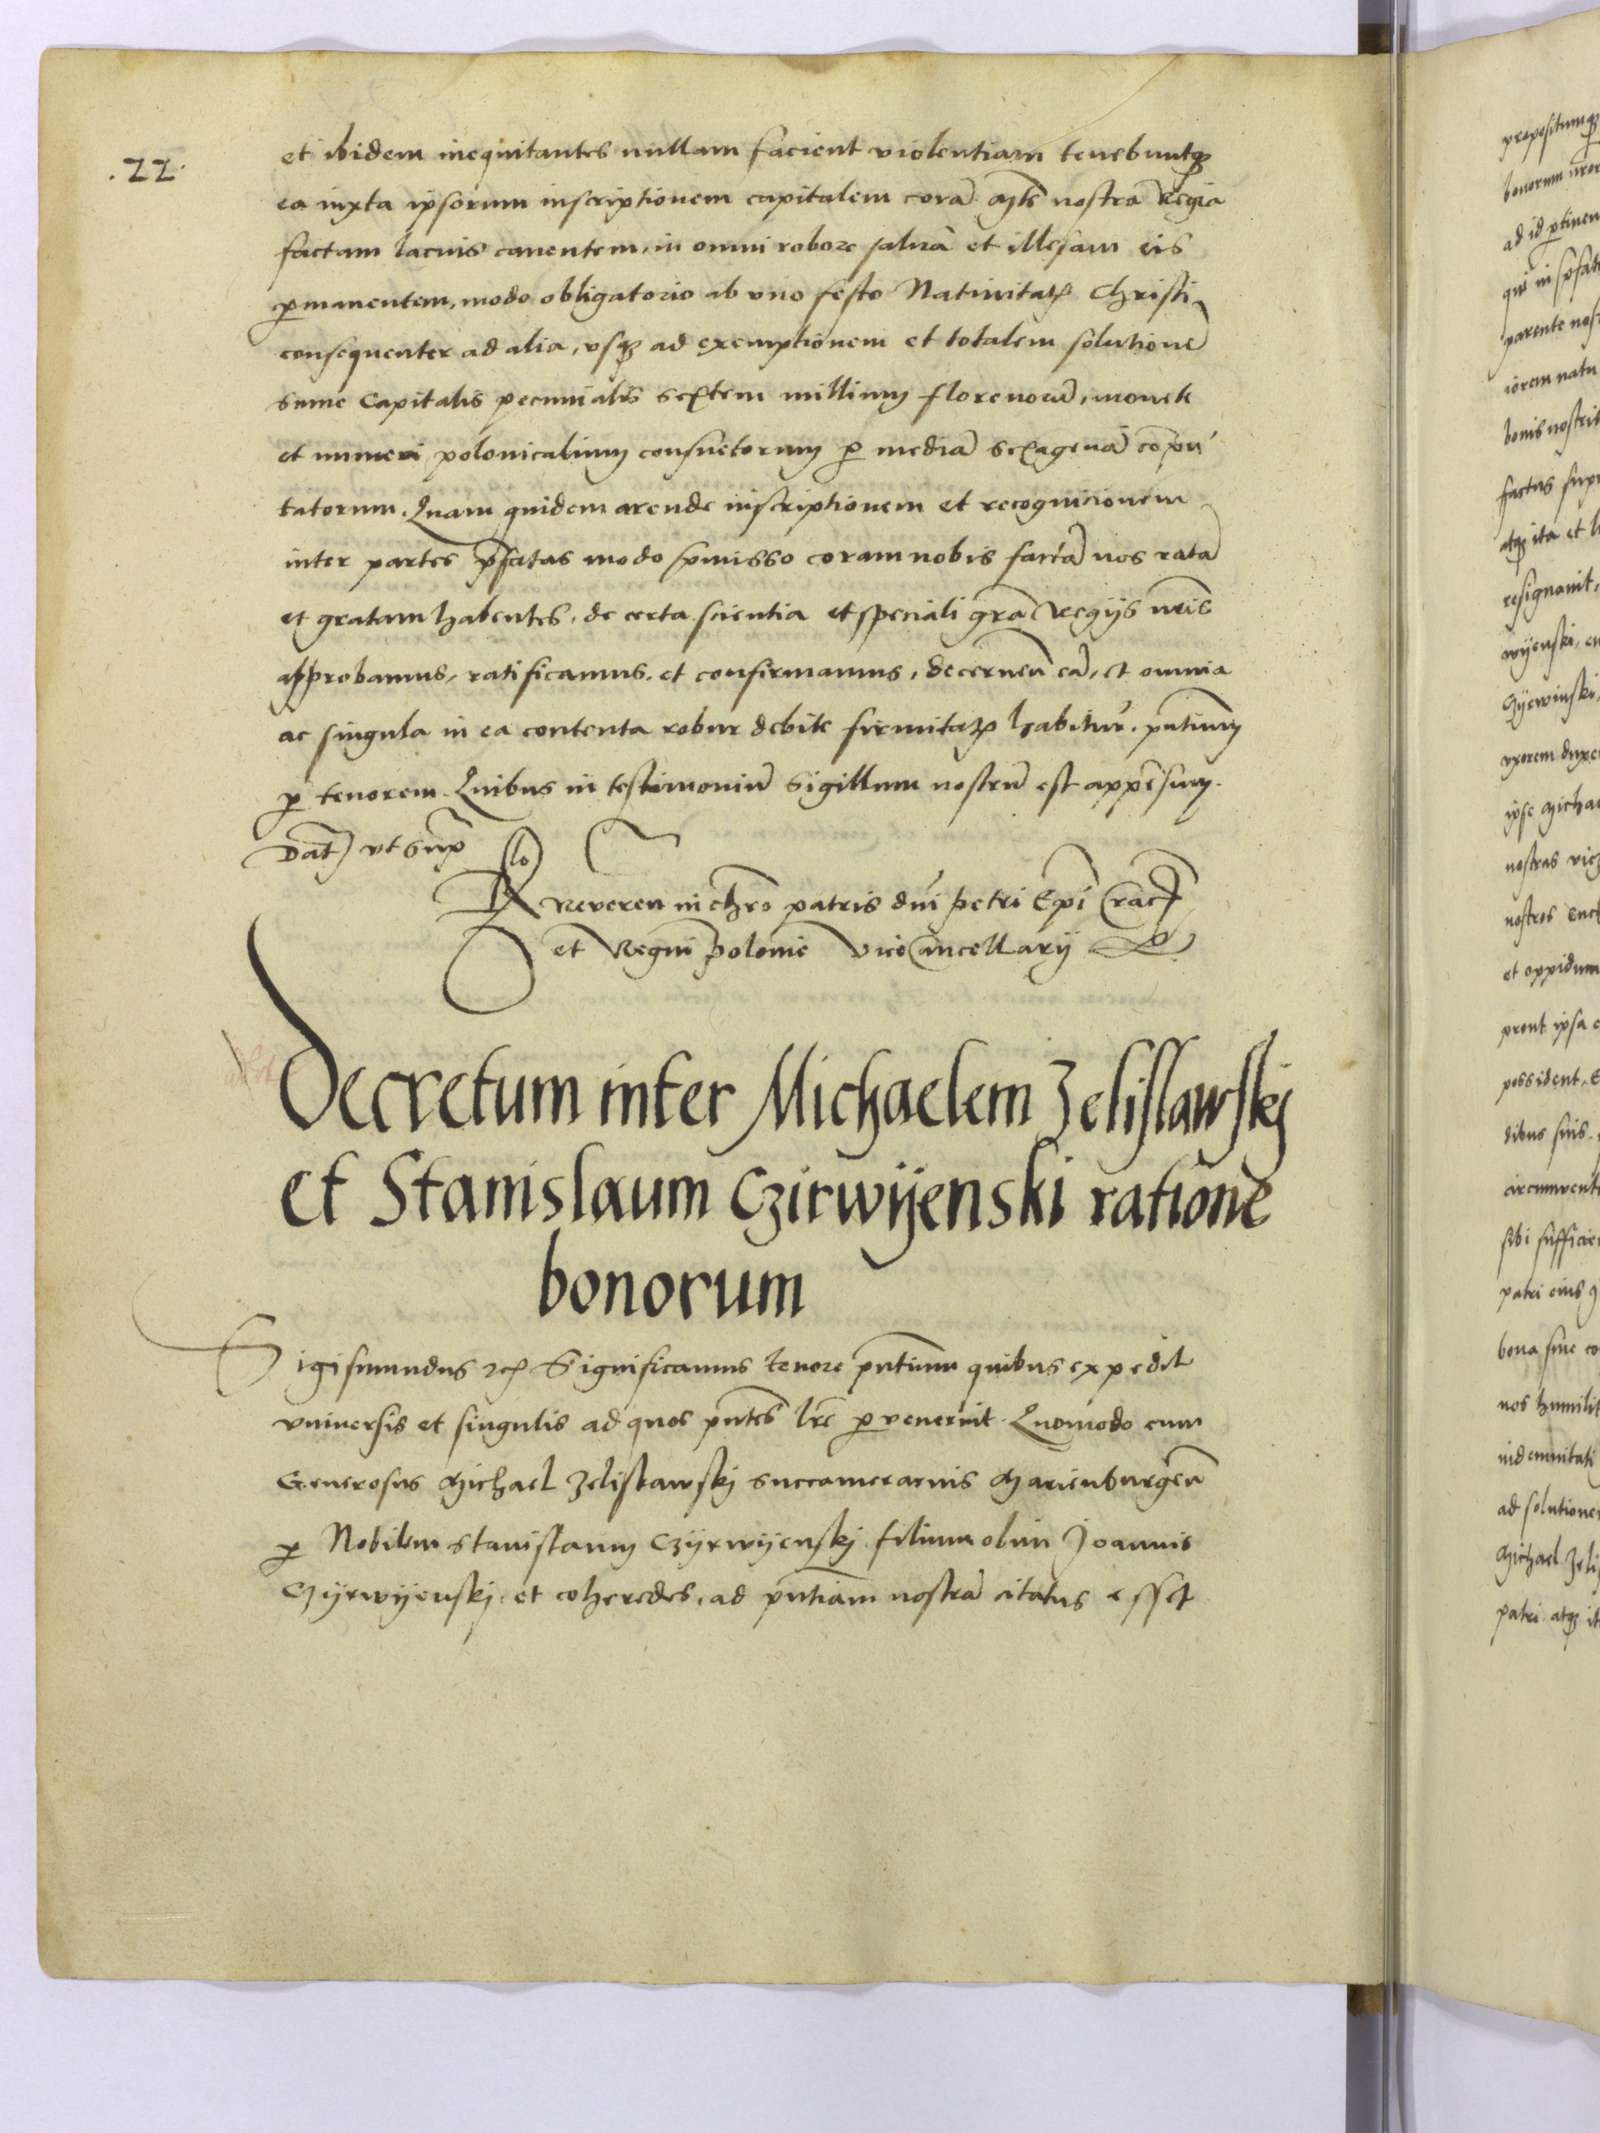 .22.
et ibidem inequitantes nullam facient violentiam tenebuntqꝫ
ea iuxta ipsorum inscriptionem capitalem corā Mte nostra Regia
factam lacius canentem, in omni robore saluā et illesam eis
ꝑmanentem, modo obligatorio ab vno festo Natiuitatꝭ Christi
consequenter ad alia, vsqꝫ ad exemptionem et totalem solutionē
sume Capitalis pecunialis septem millium florenorū, monete
et numeri polonicalium consuetorum ꝑ mediā sexagenā compu
tatorum. Quam quidem arende inscriptionem et recognicionem
inter partes p̄fatas modo p̄misso coram nobis factā nos ratā
et gratam habentes, de certa scientia et speciali grā Regijs nr̄is
approbamus, ratificamus, et confirmamus, decernen eā, et omnia
ac singula in ea contenta robur debite firmitatꝭ habitur̄. pn̄tium
ꝑ tenorem. Quibus in testimoniū Sigillum nostrū est appensum.
Dat vt supꝛ
Rlo Reueren in chr̄o patris dn̄i petri Ep̄i Crac
et Regni polonie ViceCancellarij
Decretum inter Michaelem Zelislawskj
et Stanislaum Czirwÿenski ratione
bonorum
Sigismundus ꝛc̄ Significamus tenore pn̄tium quibus expedit
vniuersis et singulis ad quos pn̄tes lr̄e ꝑuenerint. Quomodo cum
Generosus Michael Zelislawskj succamerarius Marienburgen̄
ꝑ Nobilem Stanislaum Czyrwÿenskj filium olim Joannis
Czÿrwÿenskj et coheredes, ad pn̄tiam nostrā citatus esset
propositumqꝫ
ad id ꝑtinen
parente nost
iorem natu
bonis nostris
factus supr
atqꝫ ita et
resignauit,
wÿenski, 
vxorem duxe
ipse Micha
nostras vic
et oppidum
prout ipsa c
possident, 
dibus suis.
circumuent
sibi sufficie
patri eius
bona sine co
nos humilit
indemnitati
ad solutione
Michael Zeli
patri. atqꝫ it